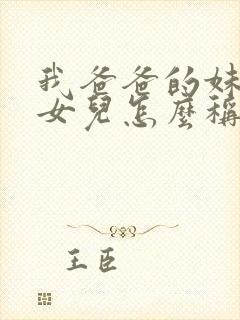 我爸爸的妹
女兒怎麼稱
王臣